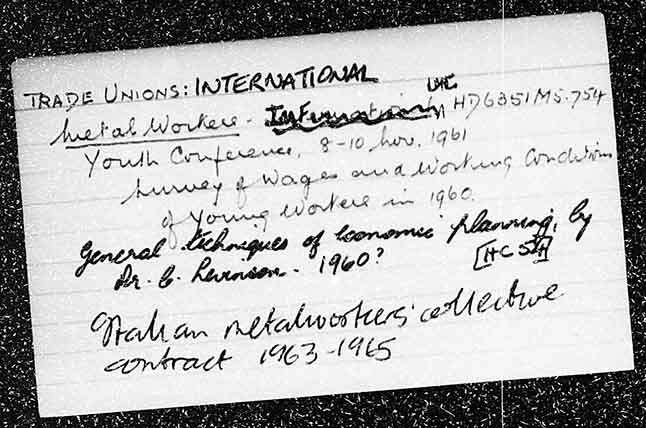 TRADE UNIONS: INTERNATIONAL
Metal Workers - HD6351M5.754
Youth Conference, 8-10 Nov. 1961
Survey of Wages and Working Conditions
of Young Workers in 1960.
General techniques of economic planning, by
Dr. C. Levinson. 1960? [HC54]
Italian metalworkers' collective
contract 1963-1965